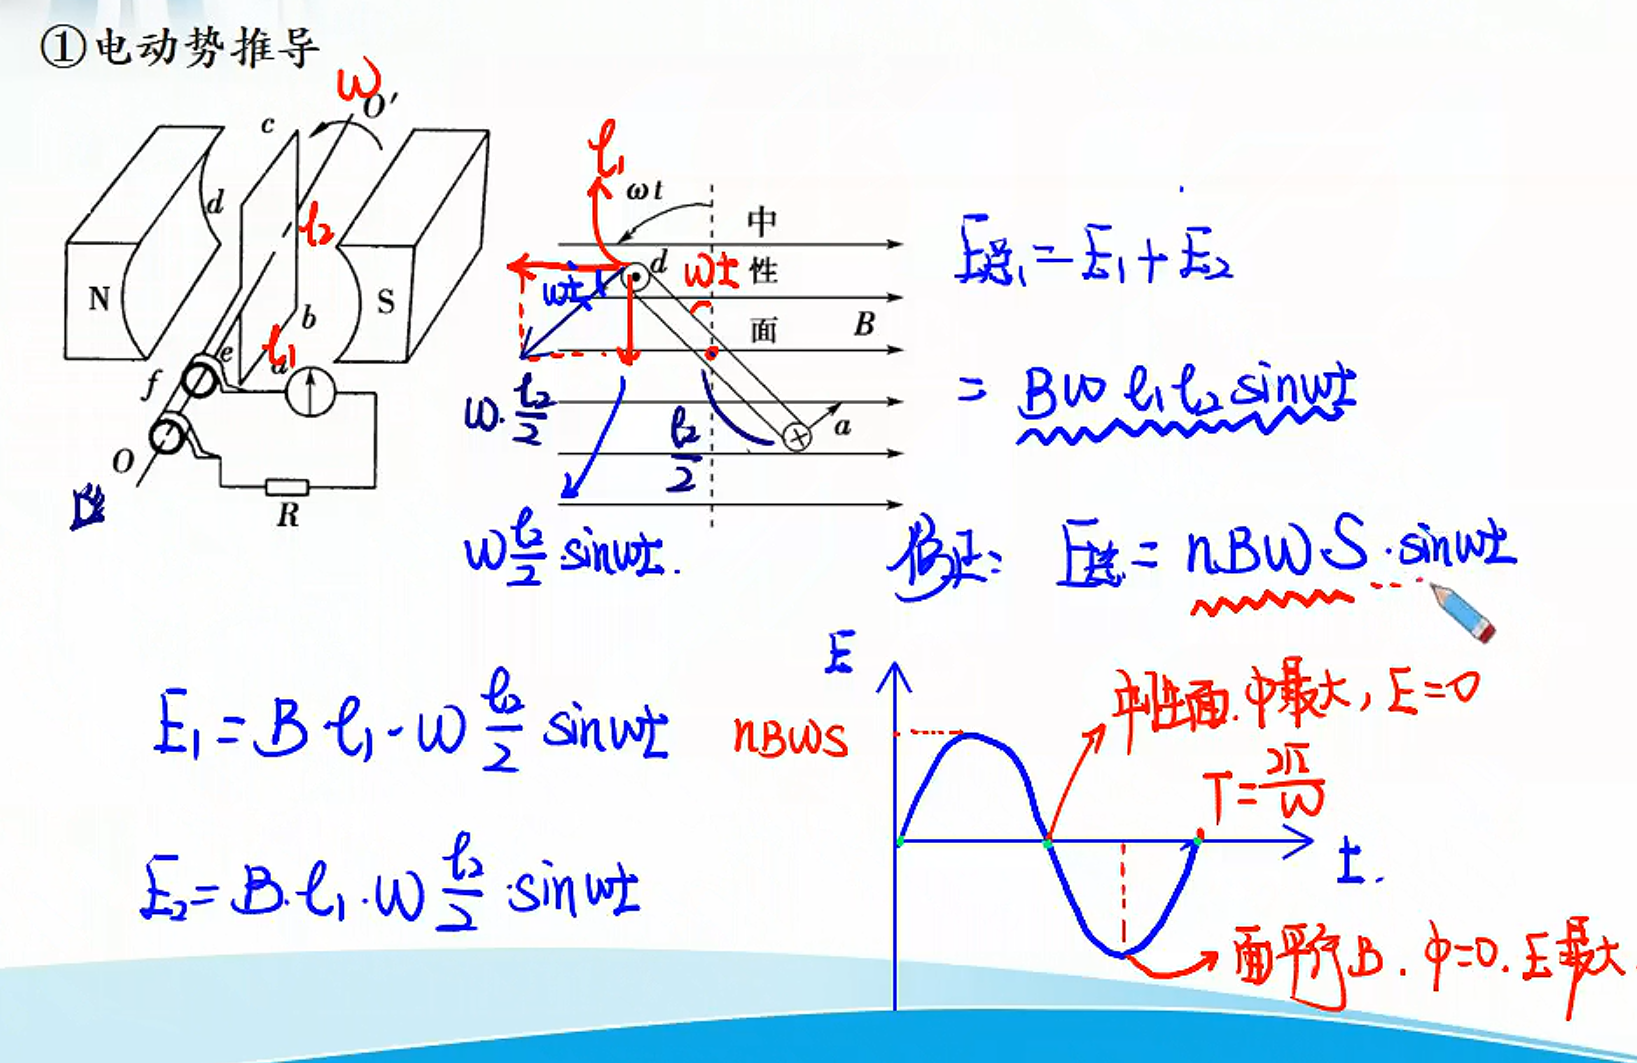 ①电动势推导
ω
O′
c
d
l₂
N
S
b
e
l₁
a
f
O
R
l₁
ωt
中
性
面
d
ωt
ωt
B
ω·l₂/2
l₂/2
a
ω l₂/2 sinωt.
E总₁=E₁+E₂
=Bωl₁l₂sinωt
修正: E总=nBωS·sinωt
E₁=Bl₁·ω l₂/2 sinωt
E₂=B·l₁·ω l₂/2·sinωt
E
nBωS
中性面.φ最大, E=0
T=2π/ω
t.
面平行B. φ=0. E最大.